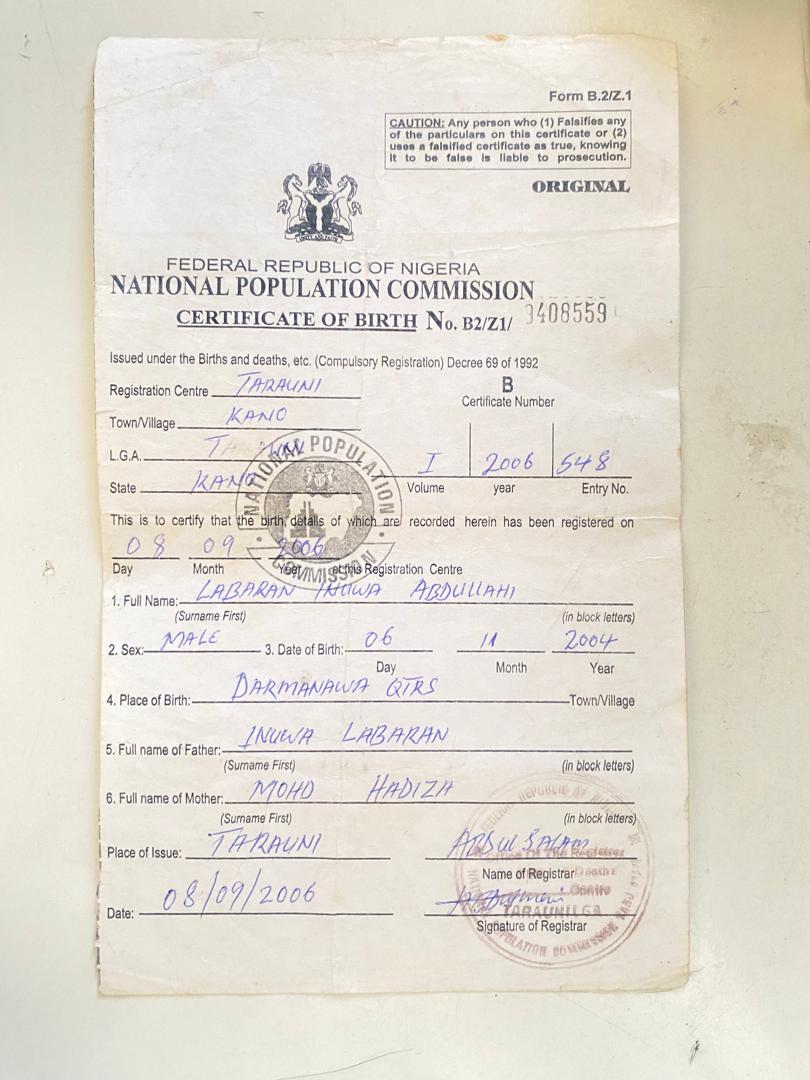 Form B.2/Z.1
CAUTION: Any person who (1) Falsifies any
of the particulars on this certificate or (2)
uses a falsified certificate as true, knowing
it to be false is liable to prosecution.
ORIGINAL
UNITY AND FAITH
FEDERAL REPUBLIC OF NIGERIA
NATIONAL POPULATION COMMISSION
CERTIFICATE OF BIRTH No. B2/Z1/ 9408559
Issued under the Births and deaths, etc. (Compulsory Registration) Decree 69 of 1992
Registration Centre TARAUNI
B
Certificate Number
Town/Village KANO
L.G.A.
State KANO
I 2006 548
Volume year Entry No.
NATIONAL POPULATION COMMISSION
This is to certify that the birth details of which are recorded herein has been registered on
08 09 2006
Day Month Year at this Registration Centre
1. Full Name: LABARAN INUWA ABDULLAHI
(Surname First) (in block letters)
2. Sex: MALE 3. Date of Birth: 06 11 2004
Day Month Year
4. Place of Birth: DARMANAWA QTRS Town/Village
5. Full name of Father: INUWA LABARAN
(Surname First) (in block letters)
6. Full name of Mother: MOHD HADIZA
(Surname First) (in block letters)
Place of Issue: TARAUNI ABDULSALAM
Name of Registrar
Date: 08/09/2006
Signature of Registrar
Office Of The Registrar
Deaths
Centre
TARAUNI LGA